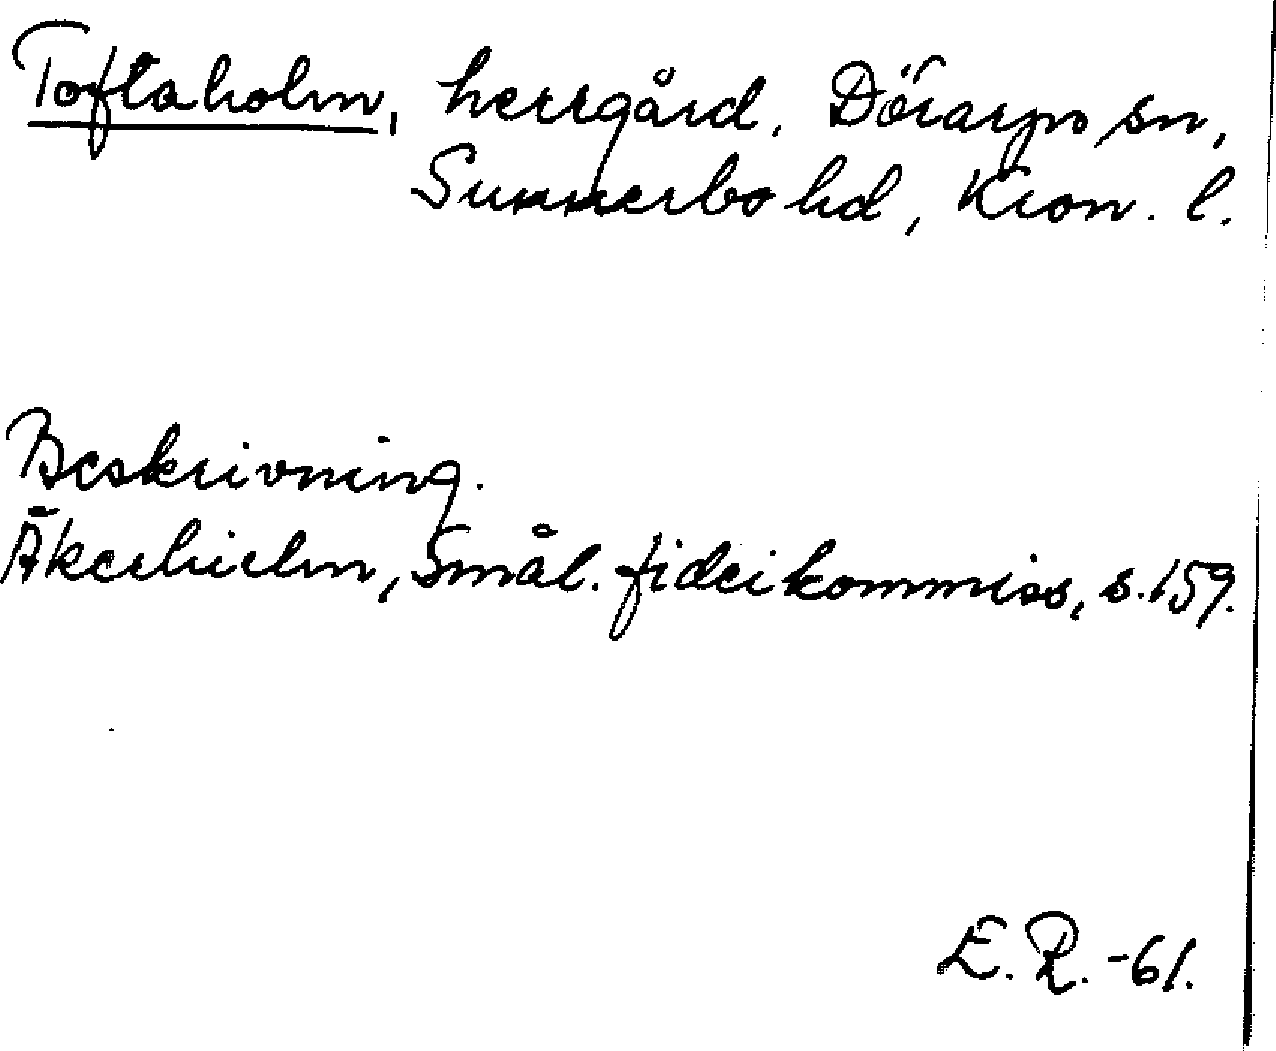 Toftaholm, herrgård, Dörarps sn,
Sunnerbo hd, Kron. l.
Beskrivning.
Åkerhielm, Smål. fideikommiss, s. 159.
E. R. -61.